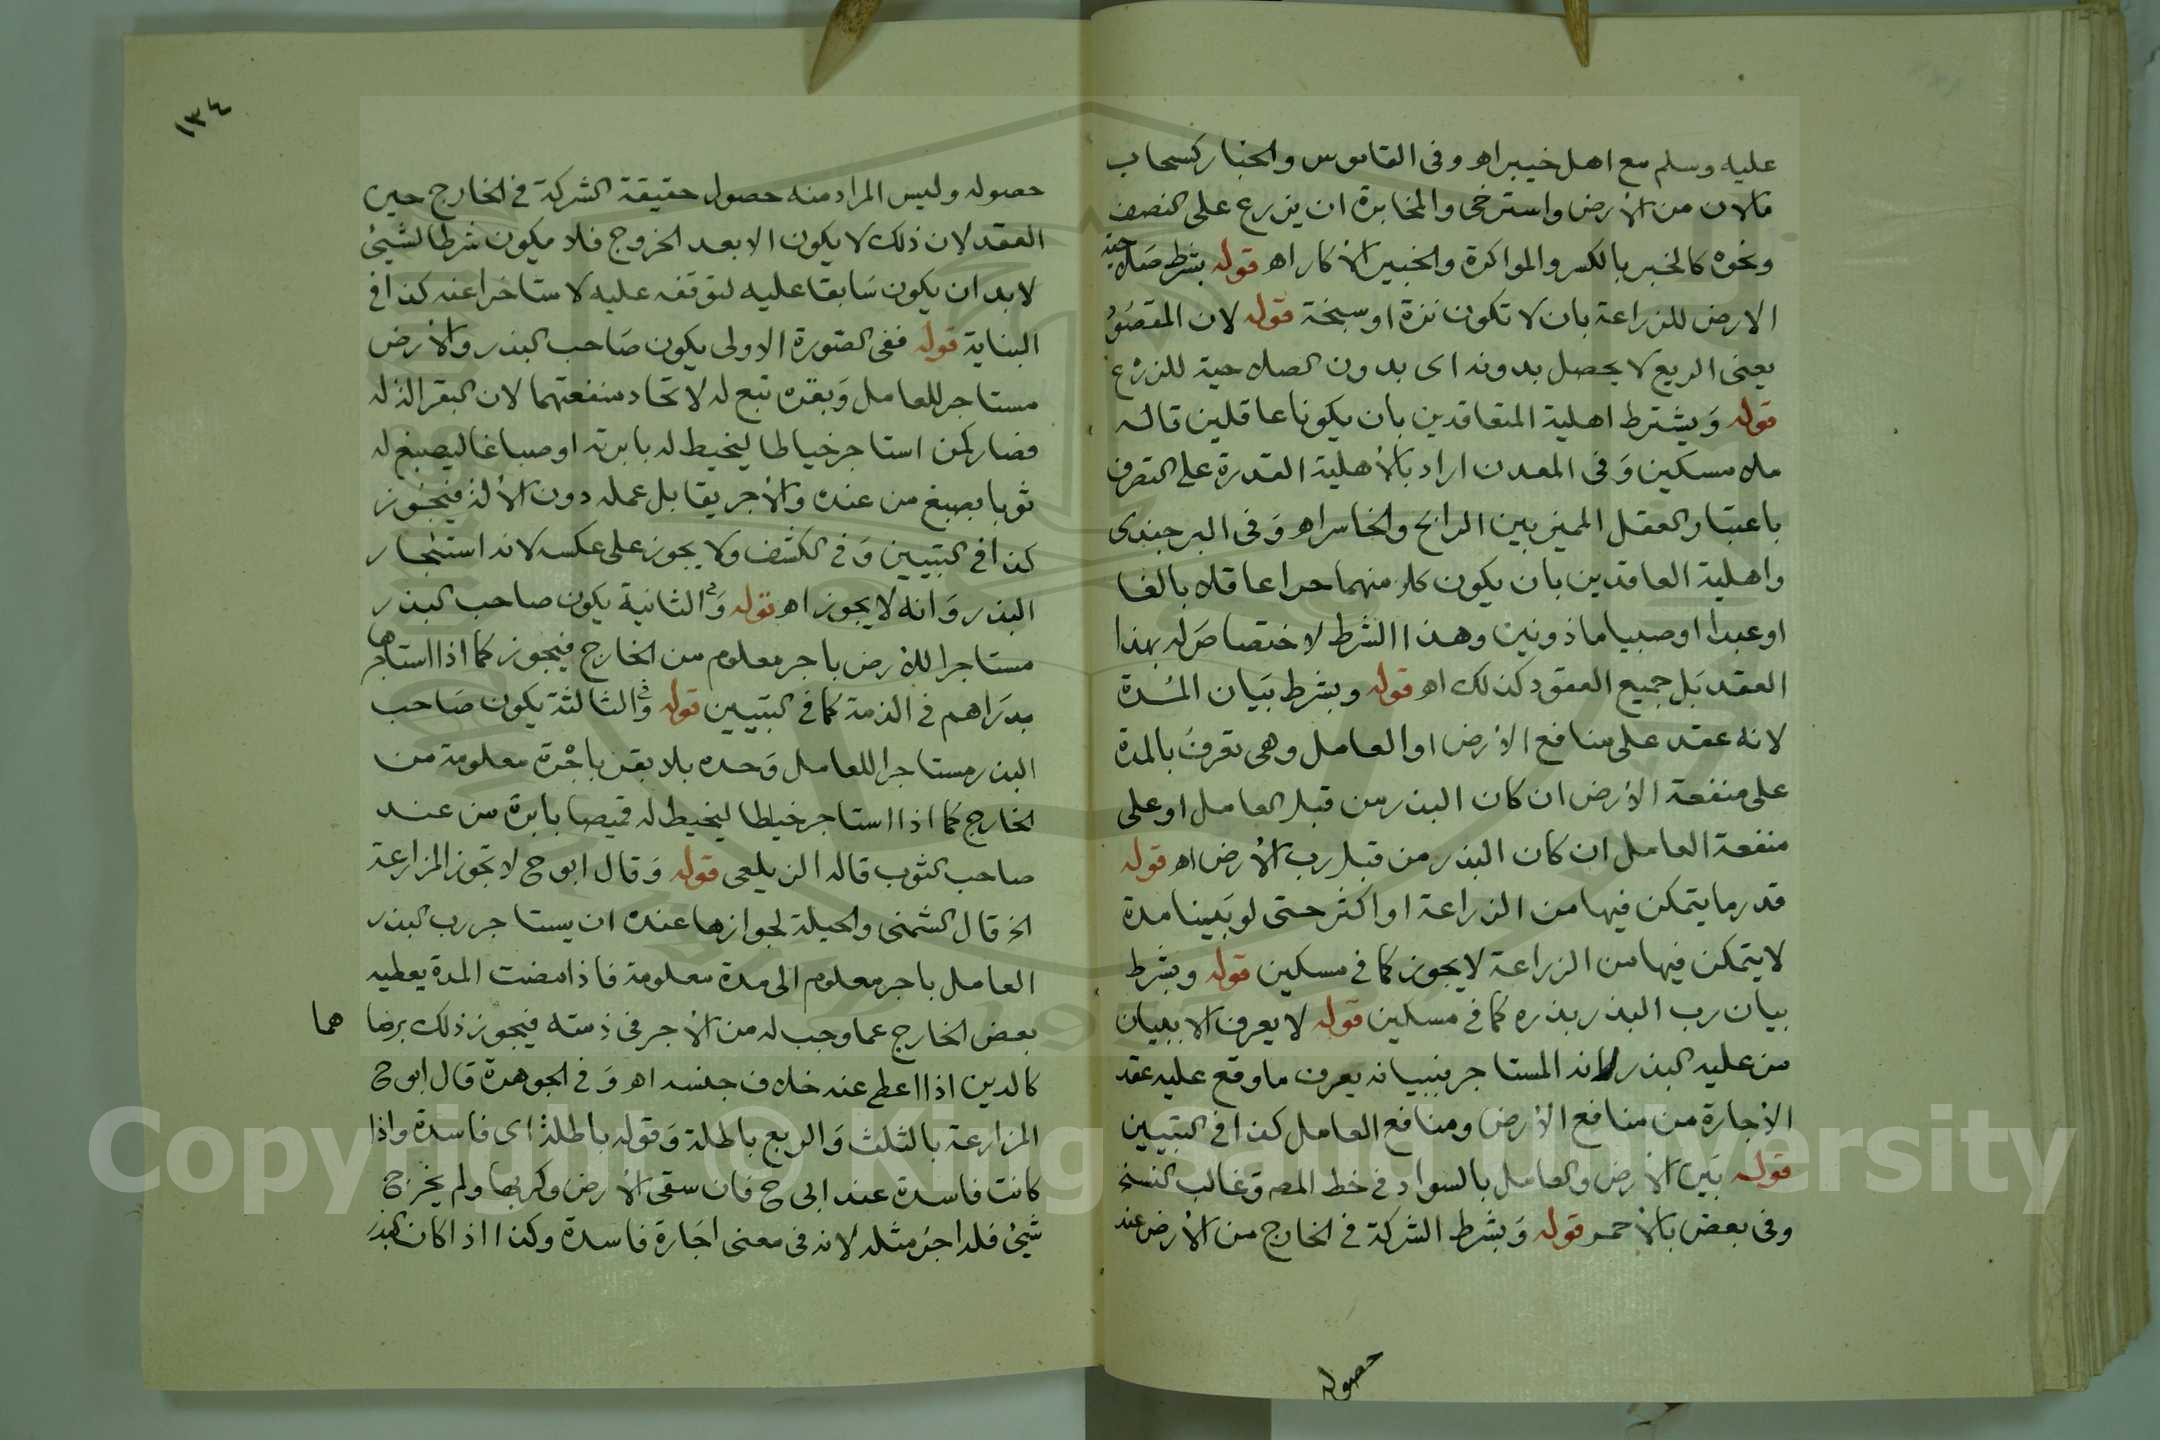 عليه وسلم مع اهل خيبر اه وفى القاموس والخبار كسحاب
مالان من الأرض واسترخى والمخابرة ان يزرع على النصف
ونحوه كالخبر بالكسر والمواكرة والخبير الأكار اه قوله بشرط صلاحية
الارض للزراعة بان لا تكون نزة او سبخة قوله لان المقصود
يعنى الريع لا يحصل بدونه اى بدون الصلاحية للزرع
قوله ويشترط اهلية المتعاقدين بان يكونا عاقلين قاله
ملا مسكين وفى المعدن اراد بالأهلية القدرة على التصرف
باعتبار العقل المميز بين الرابح والخاسر اه وفى البرجندى
واهلية العاقدين بان يكون كل منهما حرا عاقلا بالغا
او عبدا او صبيا ماذونين وهذا الشرط لا اختصاص له بهذا
العقد بل جميع العقود كذلك اه قوله وبشرط بيان المدة
لانه عقد على منافع الأرض او العامل وهى تعرف بالمدة
على منفعة الأرض ان كان البذر من قبل العامل او على
منفعة العامل ان كان البذر من قبل رب الأرض اه قوله
قدر ما يتمكن فيها من الزراعة او اكثر حتى لو بينا مدة
لا يتمكن فيها من الزراعة لا يجوز كما فى مسكين قوله وبشرط
بيان رب البذر بذره كما فى مسكين قوله لا يعرف الا ببيان
من عليه البذر لانه المستاجر فببيانه يعرف ما وقع عليه عقد
الأجارة من منافع الأرض ومنافع العامل كذا فى التبيين
قوله بين الأرض والعامل بالسواد فى خط المصـ وغالب النسخ
وفى بعض بالأحمر قوله وبشرط الشركة فى الخارج من الأرض عند
حصوله
١٣٤
حصوله وليس المراد منه حصول حقيقة الشركة فى الخارج حين
العقد لان ذلك لا يكون الا بعد الخروج فلا يكون شرطا لشيئ
لابد ان يكون سابقا عليه لتوقفه عليه لا ستاخرا عنه كذا فى
البناية قوله ففى الصورة الاولى يكون صاحب البذر والأرض
مستاجر للعامل وبقره تبع له لاتحاد منفعتهما لان البقر الة له
فصار كمن استاجر خياطا ليخيط له بابرته او صباغا ليصبغ له
ثوبا بصبغ من عنده والأجر يقابل عمله دون الألة فيجوز
كذا فى التبيين وفى الكشف ولا يجوز على عكسه لانه استئجار
البذر وانه لا يجوز اه قوله وفى الثانية يكون صاحب البذر
مستاجرا للأرض باجر معلوم من الخارج فيجوز كما اذا استاجرها
بدراهم فى الذمة كما فى التبيين قوله وفى الثالثة يكون صاحب
البذر مستاجرا للعامل وحده بلا بقر باجرة معلومة من
الخارج كما اذا استاجر خياطا ليخيط له قميصا بابرة من عند
صاحب الثوب قاله الزيلعى قوله وقال ابو ح لا تجوز المزارعة
الخ قال الشمنى والحيلة لجوازها عنده ان يستاجر رب البذر
العامل باجر معلوم الى مدة معلومة فاذا مضت المدة يعطيه
بعض الخارج عما وجب له من الأجر فى ذمته فيجوز ذلك برضاهما
كالدين اذا اعطى عنه خلاف جنسه اه وفى الجوهرة قال ابو ح
المزارعة بالثلث والربع باطلة وقوله باطلة اى فاسدة واذا
كانت فاسدة عند ابى ح فان سقى الأرض وكربها ولم يخرج
شيئ فله اجر مثله لانه فى معنى اجارة فاسدة وكذا اذا كان البذر
Copyright © King Saud University